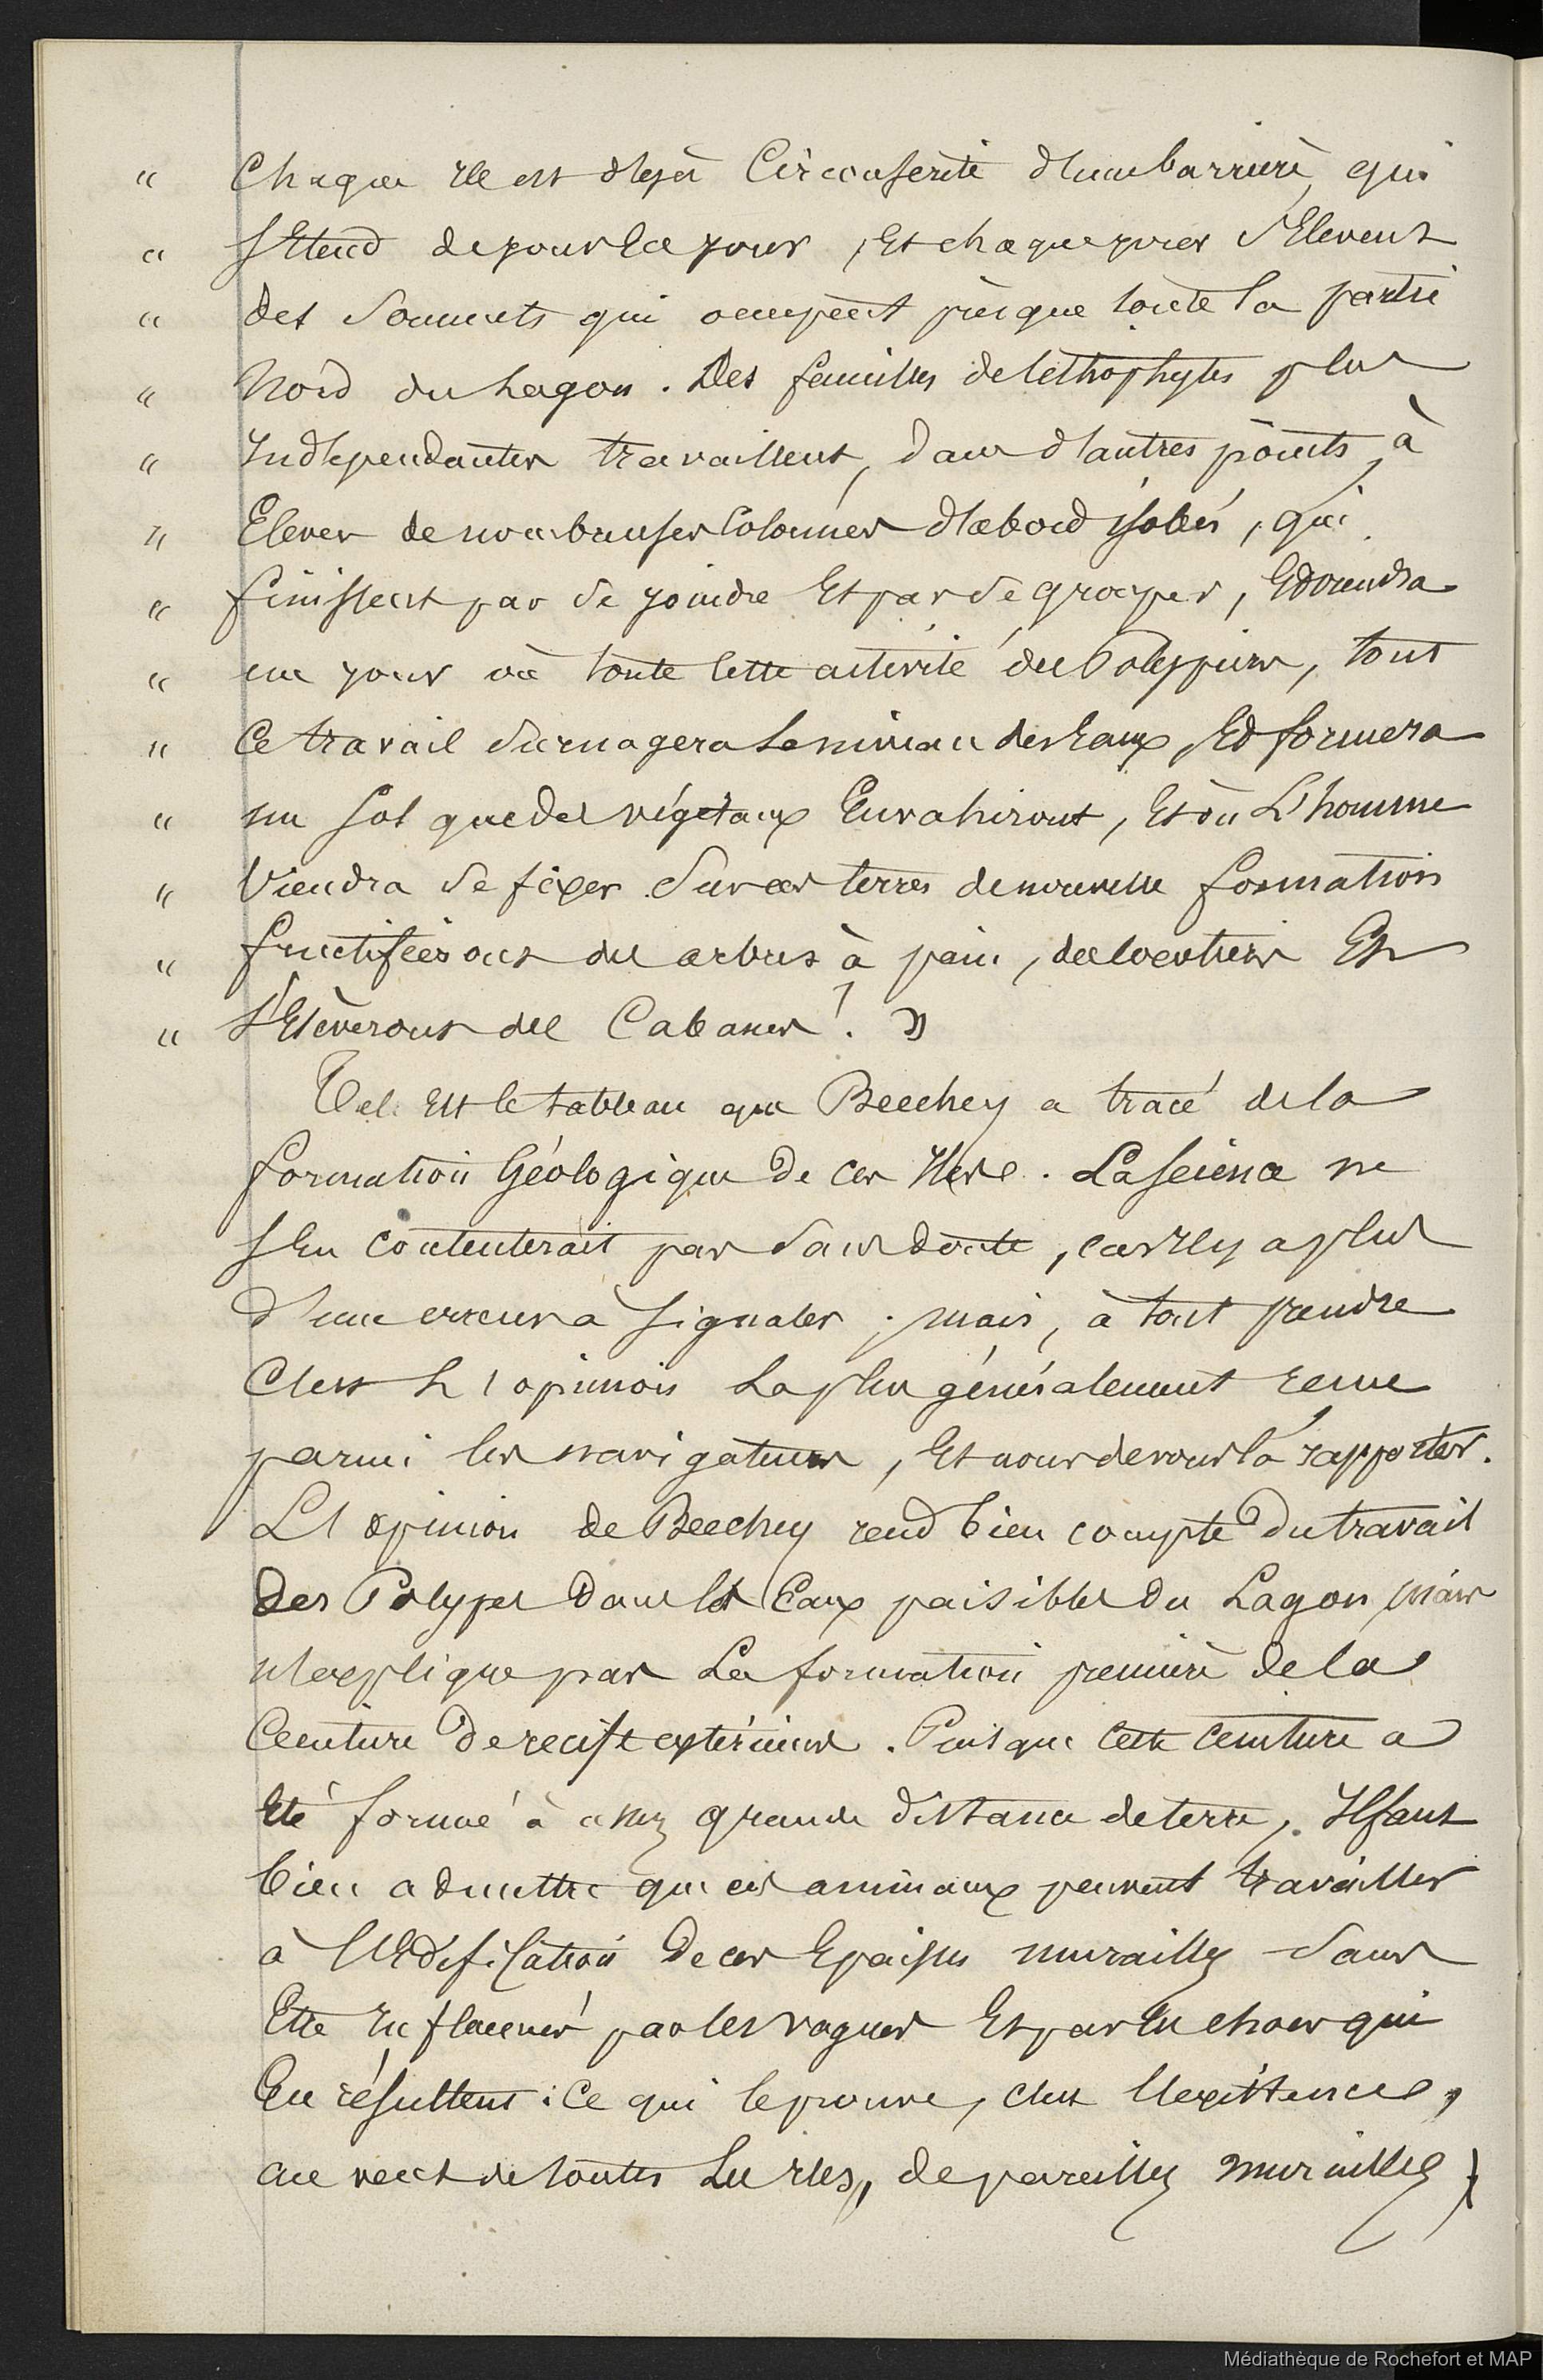 " Chaque île est déja Circonscrite d'une barriere, qui
" s'Etend de jour En jour, Et chaque jour s'Elevent
" des Sommets qui occupent presque toute la partie
" Nord du Lagon. Des familles de lithophytes plus
" Independantes travaillent, dans d'autres points, à
" Elever de nombreuses Colonnes d'abord isolées, qui
" finissent par se joindre Et par se grouper, Et viendra
" un jour où toute Cette activité des Polypiers, tout
" Ce travail surnagera Le niveau des Eaux, Et formera
" un sol que des végétaux Envahiront, Et où L'homme
" Viendra se fixer. Sur ces terres de nouvelle formation
" fructifieront des arbres à pain, des cocotiers Et
" s'Elèveront des Cabanes! "
Tel Est le tableau que Beechey a tracé de la
formation Géologique De ces Iles. La science ne
s'En contenterait pas Sans doute, car Il y a plus
d'une erreur à signaler ; mais, à tout prendre
C'est L'opinion La plus généralement reçue
parmi les navigateurs, Et nous devons la rapporter.
L'opinion de Beechey rend bien compte Du travail
Des Polypes Dans les Eaux paisibles Du Lagon, mais
n'explique pas La formation première de la
Ceinture De recifs extérieurs. Puisque Cette Ceinture a
Eté formée à assez grande distance de terre, Il faut
bien admettre que ces animaux peuvent travailler
à l'Edification De ces Epaisses murailles Sans
Etre Influencés par les vagues Et par les chocs qui
En résultent : Ce qui le prouve, c'est l'existence,
au vent de toutes Les Iles, de pareilles murailles ;
Médiathèque de Rochefort et MAP